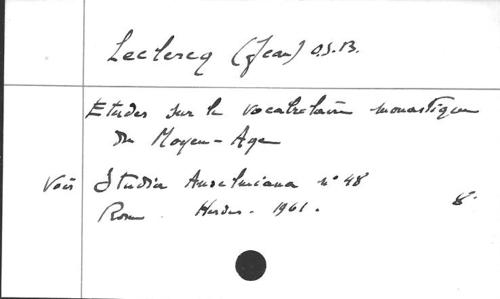 Leclercq (Jean) O.S.B.
Etudes sur le vocabulaire monastique
du Moyen-Age
Voir Studia Anselmiana n° 48
Rome. Herder. 1961. 8°